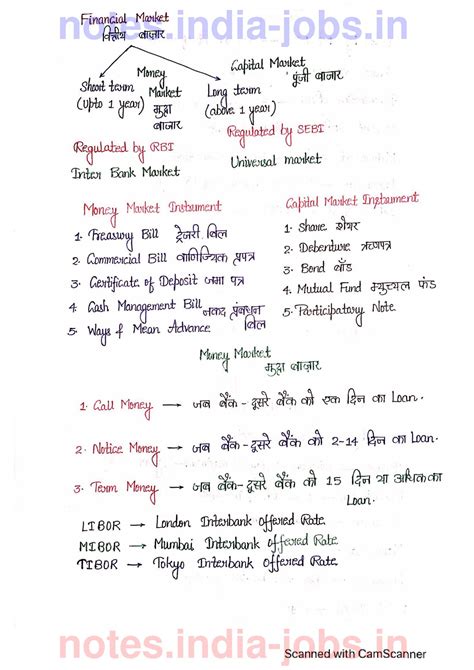 notes.india-jobs.in
Financial Market
वित्तीय बाज़ार
Money Market
मुद्रा बाज़ार
Short term
(Upto 1 year)
Regulated by RBI
Inter Bank Market
Capital Market
पूंजी बाज़ार
Long term
(above 1 year)
Regulated by SEBI
Universal market
Money Market Instrument
1. Treasury Bill ट्रेजरी बिल
2. Commercial Bill वाणिज्यिक प्रपत्र
3. Certificate of Deposit जमा पत्र
4. Cash Management Bill नकद प्रबंधन बिल
5. Ways of Mean Advance
Capital Market Instrument
1. Share शेयर
2. Debenture ऋणपत्र
3. Bond बाँड
4. Mutual Fund म्युच्यल फंड
5. Participatory Note
Money Market
मुद्रा बाज़ार
1. Call Money → जब बैंक-दूसरे बैंक को एक दिन का Loan.
2. Notice Money → जब बैंक-दूसरे बैंक को 2-14 दिन का Loan.
3. Term Money → जब बैंक-दूसरे बैंक को 15 दिन या अधिक का
Loan.
LIBOR → London Interbank offered Rate
MIBOR → Mumbai Interbank offered Rate
TIBOR → Tokyo Interbank offered Rate.
notes.india-jobs.in
Scanned with CamScanner